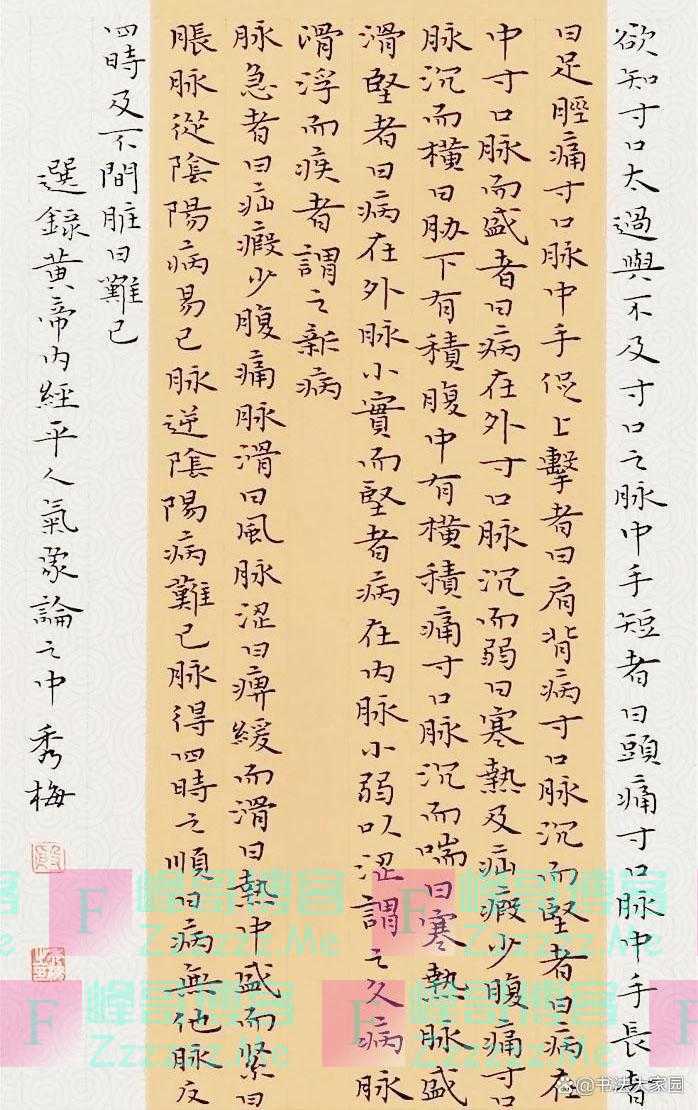 欲知寸口太過與不及寸口之脉中手短者曰頭痛寸口脉中手長者
曰足脛痛寸口脉中手促上擊者曰肩背病寸口脉沉而堅者曰病在
中寸口脉而盛者曰病在外寸口脉沉而弱曰寒熱及疝瘕少腹痛寸口
脉沉而橫曰胁下有積腹中有橫積痛寸口脉沉而喘曰寒熱脉盛
滑堅者曰病在外脉小實而堅者病在内脉小弱以澀謂之久病脉
滑浮而疾者謂之新病
脉急者曰疝瘕少腹痛脉滑曰風脉澀曰痹緩而滑曰熱中盛而緊曰
脹脉從陰陽病易已脉逆陰陽病難已脉得四時之順曰病無他脉反
四時及不間脏曰難已
選錄黄帝内經平人氣象論之中 秀梅
峰哥博客
Zzzzzz.Me
F
峰哥博客
Zzzzzz.Me
F
峰哥博客
Zzzzzz.Me
F
峰哥博客
Zzzzzz.Me
@书法大家园